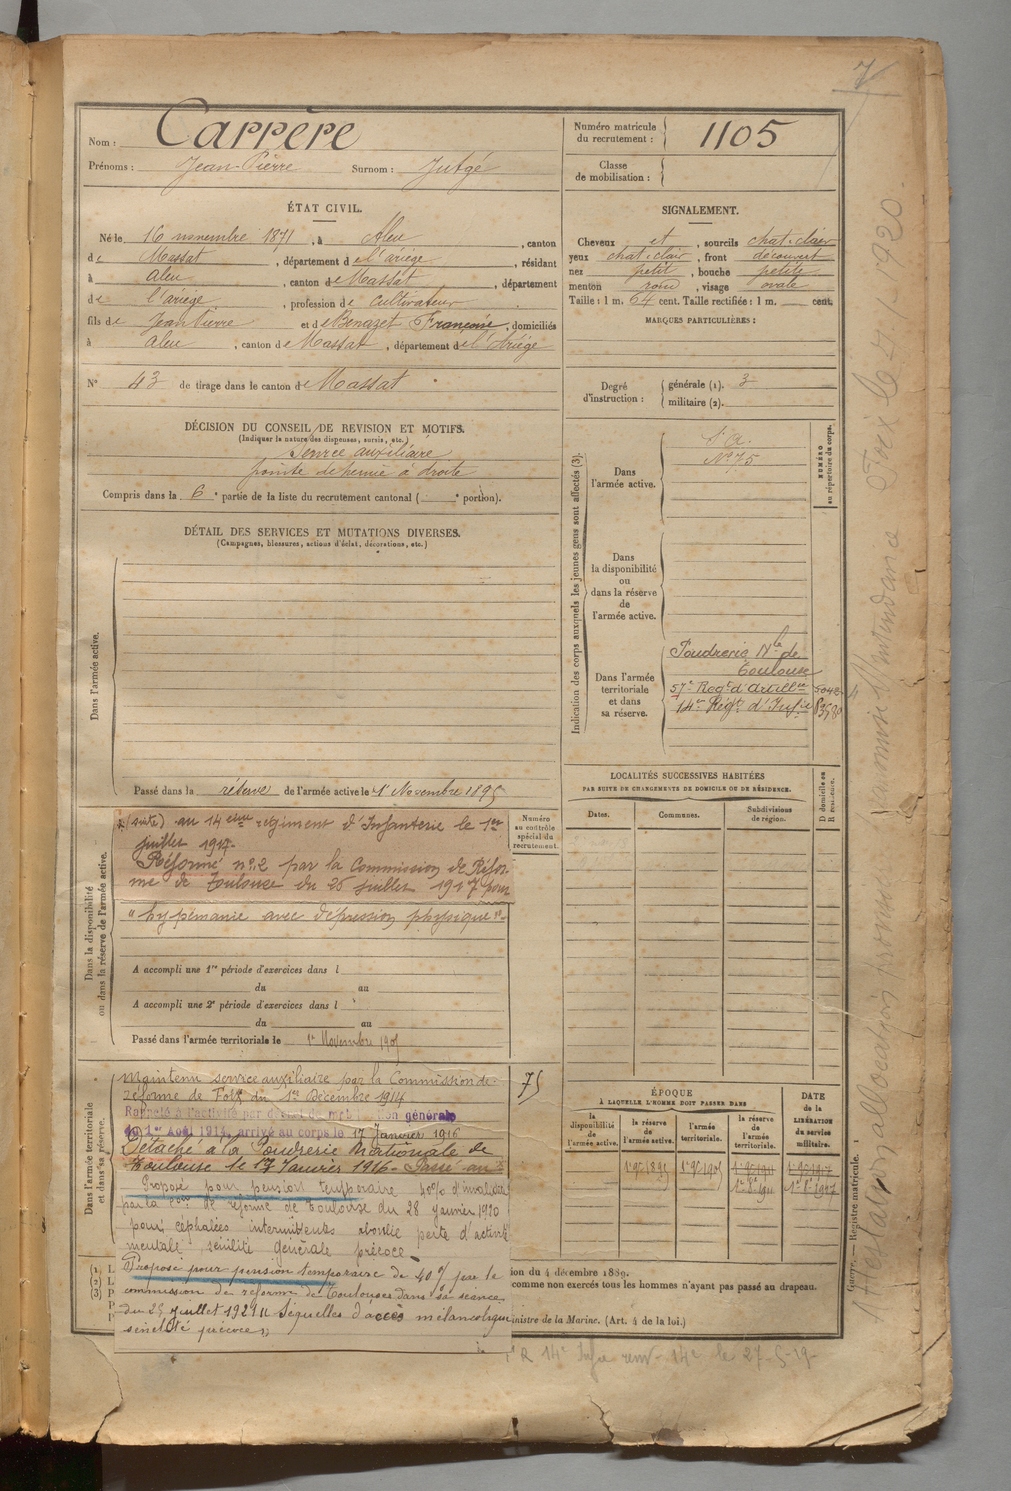 7
Nom : Carrère
Prénoms : Jean-Pierre Surnom : Jutgé
Numéro matricule du recrutement : 1105
Classe de mobilisation :
ÉTAT CIVIL.
Né le 16 novembre 1871, à Aleu, canton
de Massat, département de l'ariège, résidant
à Aleu, canton de Massat, département
de l'ariège, profession de cultivateur
fils de Jean Pierre et de Benazet Françoise, domiciliés
à Aleu, canton de Massat, département de l'Ariège
N° 43 de tirage dans le canton de Massat
SIGNALEMENT.
Cheveux et, sourcils chat-clair
yeux chat-clair, front découvert
nez petit, bouche petite
menton rond, visage ovale
Taille : 1 m. 64 cent. Taille rectifiée : 1 m. cent.
MARQUES PARTICULIÈRES :
Degré d'instruction : générale (1). 3
militaire (2).
DÉCISION DU CONSEIL DE REVISION ET MOTIFS.
(Indiquer la nature des dispenses, sursis, etc.)
Service auxiliaire
pointe de hernie à droite
Compris dans la 6e partie de la liste du recrutement cantonal ( e portion).
DÉTAIL DES SERVICES ET MUTATIONS DIVERSES.
(Campagnes, blessures, actions d'éclat, décorations, etc.)
Dans l'armée active.
Passé dans la réserve de l'armée active le 1 Novembre 1895
Indication des corps auxquels les jeunes gens sont affectés (3).
NUMÉRO au répertoire du corps.
Dans l'armée active.
S. A.
N° 75
Dans la disponibilité ou dans la réserve de l'armée active.
Dans l'armée territoriale et dans sa réserve.
Poudrerie Nle de
Toulouse
57e Regt d'Artillie
14e Régt d'Infie
LOCALITÉS SUCCESSIVES HABITÉES
PAR SUITE DE CHANGEMENTS DE DOMICILE OU DE RÉSIDENCE.
Dates. Communes. Subdivisions de région. D domicile ou R résidence.
Dans la disponibilité ou dans la réserve de l'armée active.
Numéro au contrôle spécial du recrutement.
(suite) au 14eme régiment d'Infanterie le 1er
juillet 1917.
Réformé n° 2 par la Commission de Réfor-
me de Toulouse du 26 juillet 1917 pour
"hypémanie avec dépression physique"
A accompli une 1re période d'exercices dans l
du au
A accompli une 2e période d'exercices dans l
du au
Passé dans l'armée territoriale le 1er Novembre 1905
Dans l'armée territoriale et dans sa réserve.
75
Maintenu service auxiliaire par la Commission de
réforme de Foix du 1er Décembre 1914
Rappelé à l'activité par décret de mobilisation générale
du 1er Août 1914, arrivé au corps le 17 Janvier 1916
Détaché à la Poudrerie Nationale de
Toulouse le 17 Janvier 1916 - Passé au
Proposé pour pension temporaire 10% d'invalidité
par la Con de réforme de Toulouse du 28 janvier 1920
pour céphalées intermittentes perte d'activité
mentale sénilité générale précoce
Proposé pour pension temporaire de 40% par la
commission de réforme de Toulouse dans sa séance
du 25 juillet 1921 "Séquelles d'accès mélancolique
sénilité précoce"
ÉPOQUE
À LAQUELLE L'HOMME DOIT PASSER DANS
la disponibilité de l'armée active. la réserve de l'armée active. l'armée territoriale. la réserve de l'armée territoriale.
DATE de la LIBÉRATION du service militaire.
1 9e 1895 1 9e 1905 1 9e 1911 1 9e 1917
1r 8e 1911 1r 8e 1917
ion du 4 décembre 1889.
comme non exercés tous les hommes n'ayant pas passé au drapeau.
ministre de la Marine. (Art. 4 de la loi.)
Guerre. — Registre matricule. 1
R 14e Infie 14e le 27-5-19